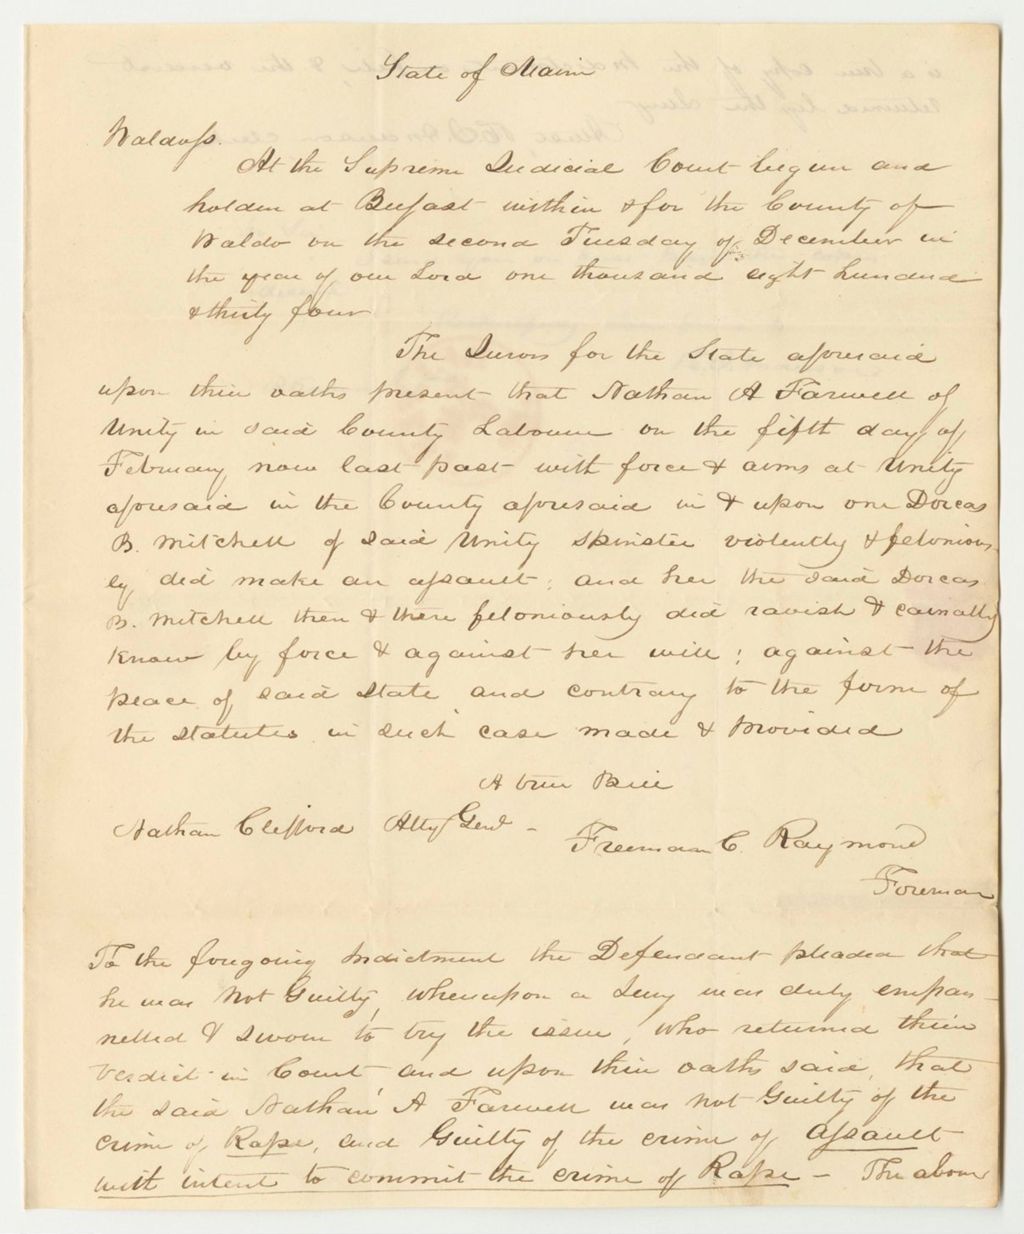 State of Maine
Waldo ss.
At the Supreme Judicial Court begun and
holden at Belfast within & for the County of
Waldo on the second Tuesday of December in
the year of our Lord one thousand eight hundred
& thirty four
The Jurors for the State aforesaid
upon their oaths present that Nathan A Farwell of
Unity in said County Labourer on the fifth day of
February now last past with force & arms at Unity
aforesaid in the County aforesaid in & upon one Dorcas
B. Mitchell of said Unity Spinster violently & felonious-
ly did make an assault; and her the said Dorcas
B. Mitchell then & there feloniously did ravish & carnally
know by force & against her will; against the
peace of said State and contrary to the form of
the statutes in such case made & provided
A true Bill
Nathan Clifford Atty Genl -
Freeman C. Raymond
Foreman
To the foregoing Indictment the Defendant pleaded that
he was Not Guilty, whereupon a Jury was duly empan-
nelled & sworn to try the issue, who returned their
verdict in Court and upon their oaths said, that
the said Nathan A Farwell was not Guilty of the
crime of Rape, and Guilty of the crime of assault
with intent to commit the crime of Rape - The above